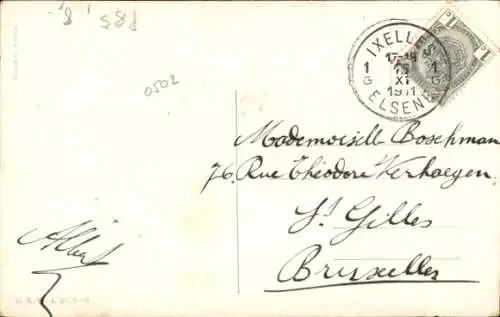 0502
IXELLES
17-18
15
XI
1911
1 G
1 G
ELSENE
1
1
Mademoiselle Boschman
76, Rue Théodore Verhaegen
St Gilles
Bruxelles
Albert